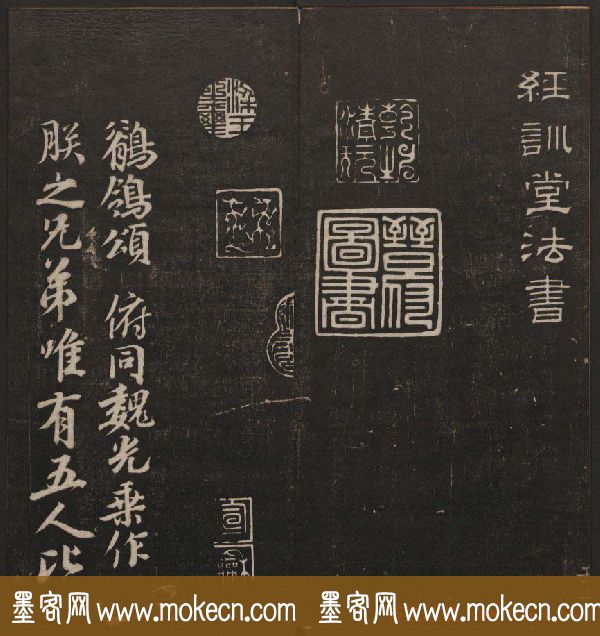 經訓堂法書
乾坤清玩
晉府圖書
鶺鴒頌 俯同魏光乗作
朕之兄弟唯有五人比
墨客网 www.mokecn.com 墨客网 www.mokecn.com